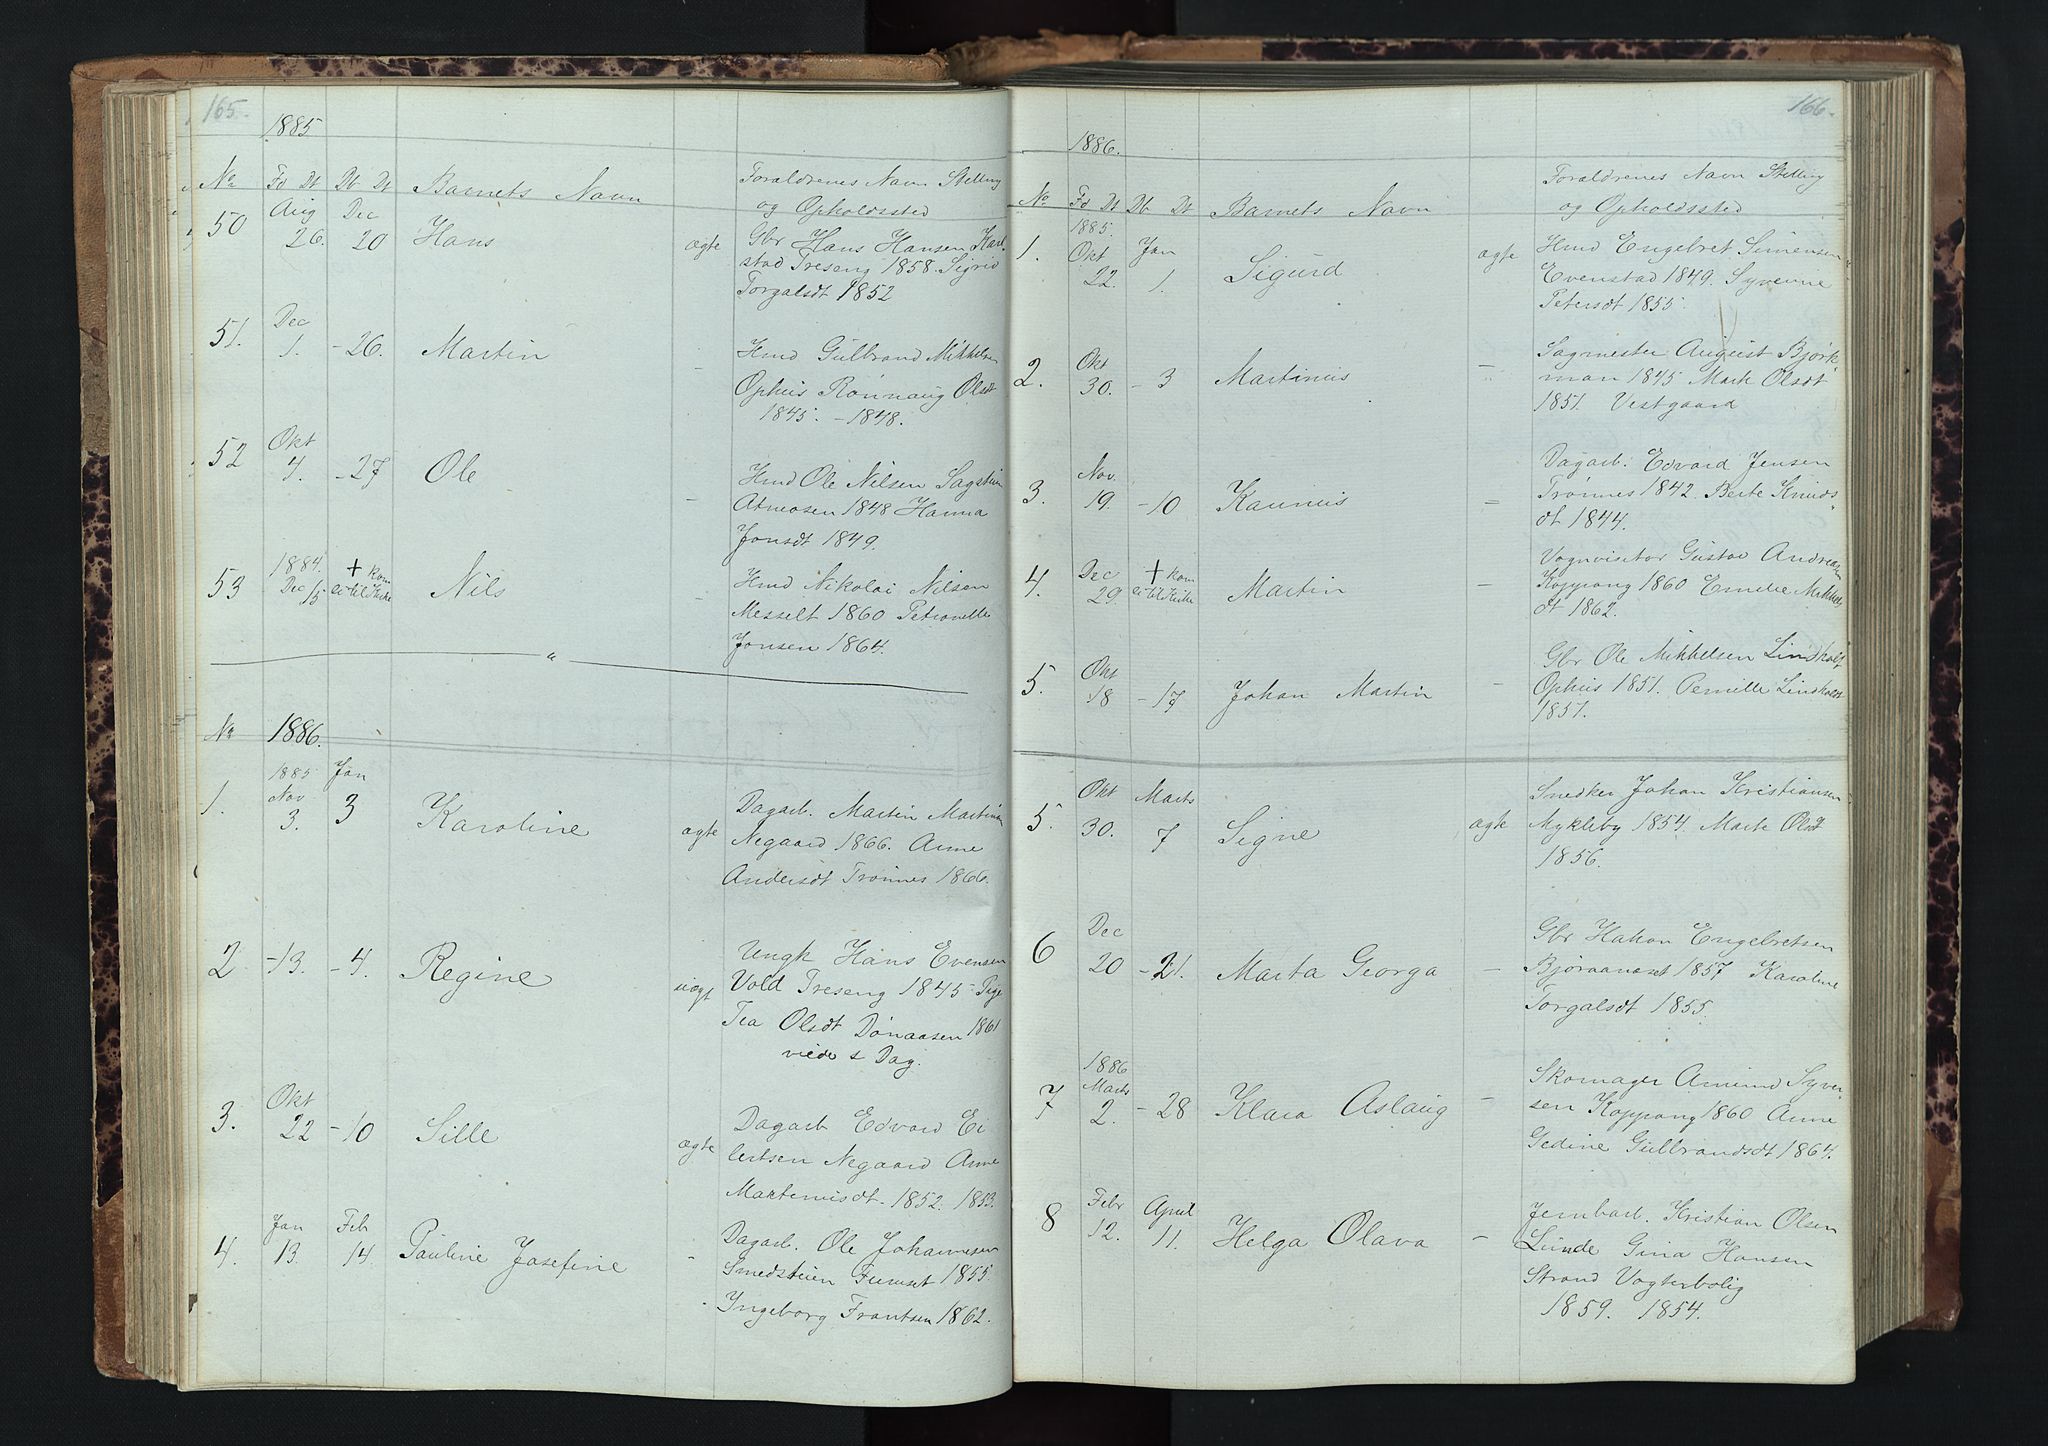 165.
1885
No Fd Dt Db Dt Barnets Navn Foraldrenes Navn Stelling
og Opholdssted
50 Aug 26. Dec 20 Hans ægte Gbr Hans Hansen Karl
stad Treseng 1858. Sigrid
Torgalsdt 1852
51. Dec 1. - 26. Martin - Hmd Gulbrand Mikkelsen
Ophus Rønnaug Olsdt
1845. - 1848.
52 Okt 4. - 27 Ole - Hmd Ole Nilsen Sagstuen
Atneosen 1848 Hanna
Jonsdt 1849.
53 1884. Dec 15 + kom ei til Kirke Nils - Hmd Nikolai Nilsen
Messelt 1860 Petronelle
Jonsen 1864.
No 1886.
1. 1885 Nov 3. Jan 3 Karoline ægte Dagarb. Martin Martinsen
Negaard 1866. Anne
Andersdt Trønnes 1866.
2 - 13. - 4. Regine uægt Ungk Hans Evensen
Vold Treseng 1845 - Pige
Tea Olsdt Dønaasen 1861
viede s Dag.
3. Okt 22 - 10 Sille ægte Dagarb Edvard Ei
lertsen Negaard Anne
Martinusdt. 1852. 1853.
4. Jan 13. Feb 14. Pauline Josefine - Dagarb. Ole Johannesen
Smedstuen Furuset 1855.
Ingeborg Frantsen 1862.
166.
1886.
No Fd Dt Db Dt Barnets Navn Foraldrenes Navn Stelling
og Opholdssted
1. 1885. Okt 22. Jan 1. Sigurd ægte Hmd Engebret Simensen
Evenstad 1849. Syverine
Petersdt 1855.
2. Okt 30. - 3 Martinus - Sagmester August Bjørk
man 1845 Mart Olsdt
1851. Vestgaard
3. Nov. 19. - 10 Kaunus = Dagarb. Edvard Jensen
Trønnes 1842. Berte Knuds
dt 1844.
4. Dec 29. + kom ei til Kirke Martin - Vognvisitør Gustav Andreasen
Koppang 1860 Emelie Mikkels
dt 1862.
5. Okt 18 - 17 Johan Martin - Gbr Ole Mikkelsen Lindholt
Ophus 1851. Pernille Lindholt
1851.
5. Okt 30. Marts 7 Signe ægte Snedker Johan Kristiansen
Mykleby 1854. Marte Olsdt
1856.
6 Dec 20 - 21. Marta Georga - Gbr Hakon Engebretsen
Bjøraanæset 1857 Karoline
Torgalsdt 1855.
7 1886 Marts 2. - 28 Klara Aslaug - Skomager Amund Syver
sen Koppang 1860 Anne
Gedine Gulbrandsdt 1864.
8 Febr 12. April 11. Helga Olava - Jernbarb. Kristian Olsen
Lunde Gina Hansen
Strand Vogterbolig
1859. 1854.